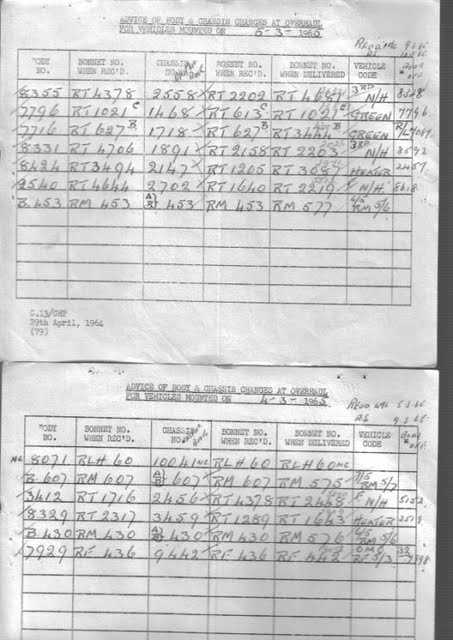 ADVICE OF BODY & CHASSIS CHANGES AT OVERHAUL
FOR VEHICLES MOUNTED ON 5-3-1965
BODY NO. BONNET NO. WHEN REC'D. CHASSIS NO. BONNET NO. WHEN REC'D. BONNET NO. WHEN DELIVERED VEHICLE CODE
8355 RT 4378 2558 RT 2202 3RD N/H 8328
7796 RT 1021 C 1468 RT 613 C RT 1021 C GREEN 7796
7716 RT 627 B 1718 RT 627 B RT 3444 GREEN
8331 RT 4706 1891 RT 2158 RT 2203 3RD N/H 8592
8424 RT 3494 2147 RT 1205 RT 3087 HEATER 2457
2540 RT 4644 2702 RT 1640 RT 2219 N/H 8618
B.453 RM 453 A/R 453 RM 453 RM 577 6/5 RM 5/6
C.13/CHP
29th April, 1964
(79)
ADVICE OF BODY & CHASSIS CHANGES AT OVERHAUL
FOR VEHICLES MOUNTED ON 4-3-1965
BODY NO. BONNET NO. WHEN REC'D. CHASSIS NO. BONNET NO. WHEN REC'D. BONNET NO. WHEN DELIVERED VEHICLE CODE
NC 8071 RLH 60 10041 NC RLH 60 RLH 60 NC
B.607 RM 607 A/R 607 RM 607 RM 575 RM 5/7
3412 RT 1716 2456 RT 4378 RT 2448 N/H 5152
8329 RT 2317 3459 RT 1289 RT 1643 HEATER 2519
B.430 RM 430 A/R 430 RM 430 RM 576 6/5 RM 5/6
7929 RF 436 9442 RF 436 RF 442 RF 5/3 7998